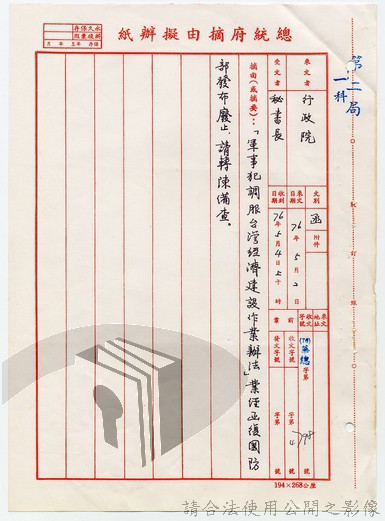 總統府摘由擬辦紙
永久保存
保存 年 月
第二局
一科
來文者 行政院
受文者 秘書長
文別 函
附件
來文日期 76年5月2日
收到日期 76年5月4日上午 時
來文字號
收文
(76)第總 字第 4798 號
前業
收文字號 字第 號
發文字號 字第 號
摘由(或摘要):「軍事犯調服台灣經濟建設作業辦法」業經函復國防
部發布廢止,請轉陳備查。
194×268公厘
請合法使用公開之影像